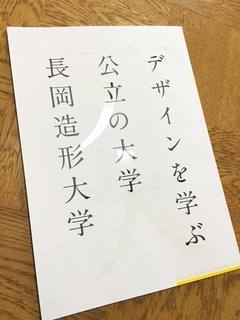 デザインを学ぶ
公立の大学
長岡造形大学